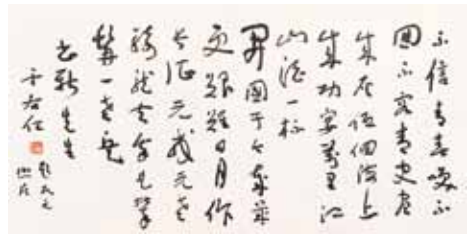 不信青春喚不
回不容青史盡
成灰低佪海上
成功宴萬里江
山酒一杯
開國于今歲幾
更艱難日月作
長征元戎元老
騎龍去攀
髯一老兵
先生
于右任
題民元